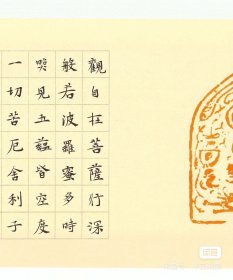 觀自在菩薩行深
般若波羅蜜多時
照見五蘊皆空度
一切苦厄舍利子